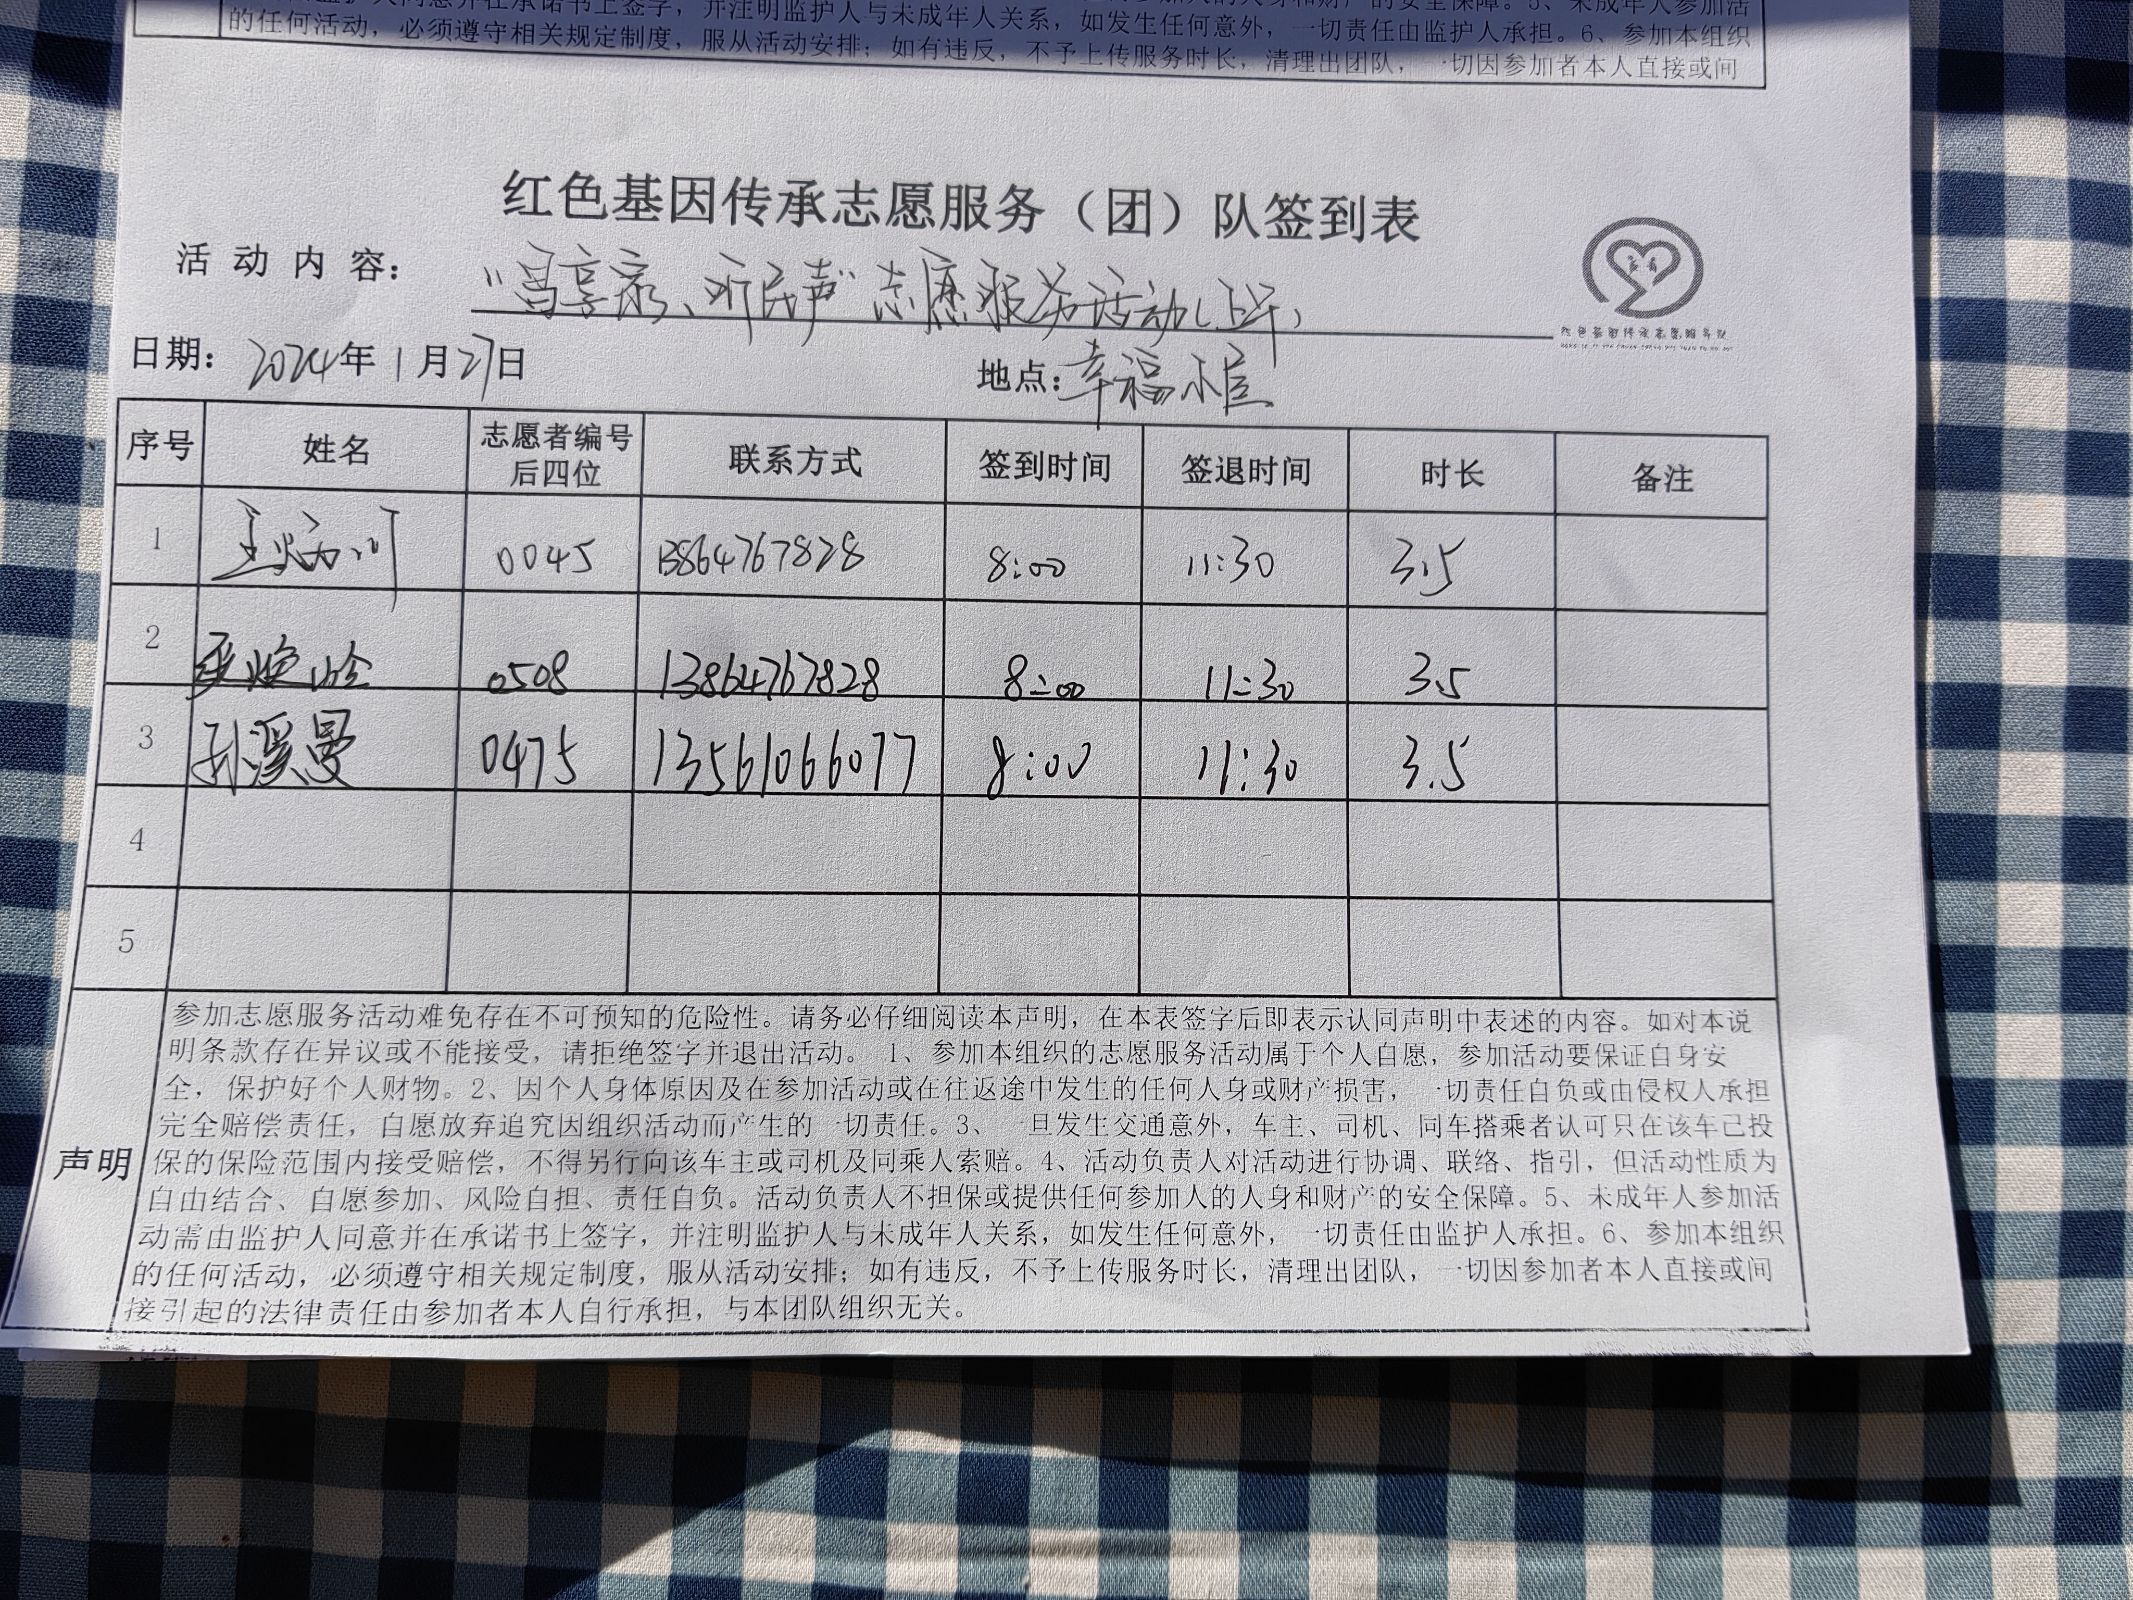 的任何活动，必须遵守相关规定制度，服从活动安排；如有违反，不予上传服务时长，清理出团队，一切因参加者本人直接或间
红色基因传承志愿服务（团）队签到表
活动内容：
享家、听民声”志愿服务活动（上午）
日期：2024年1月27日 地点：幸福小屋
序号 姓名 志愿者编号后四位 联系方式 签到时间 签退时间 时长 备注
1 0045 13864767828 8:00 11:30 3.5
2 0508 13864767828 8:00 11:30 3.5
3 孙溪曼 0475 13561066077 8:00 11:30 3.5
4
5
声明
参加志愿服务活动难免存在不可预知的危险性。请务必仔细阅读本声明，在本表签字后即表示认同声明中表述的内容。如对本说
明条款存在异议或不能接受，请拒绝签字并退出活动。 1、参加本组织的志愿服务活动属于个人自愿，参加活动要保证自身安
全，保护好个人财物。2、因个人身体原因及在参加活动或在往返途中发生的任何人身或财产损害，一切责任自负或由侵权人承担
完全赔偿责任，自愿放弃追究因组织活动而产生的一切责任。3、一旦发生交通意外，车主、司机、同车搭乘者认可只在该车已投
保的保险范围内接受赔偿，不得另行向该车主或司机及同乘人索赔。4、活动负责人对活动进行协调、联络、指引，但活动性质为
自由结合、自愿参加、风险自担、责任自负。活动负责人不担保或提供任何参加人的人身和财产的安全保障。5、未成年人参加活
动需由监护人同意并在承诺书上签字，并注明监护人与未成年人关系，如发生任何意外，一切责任由监护人承担。6、参加本组织
的任何活动，必须遵守相关规定制度，服从活动安排；如有违反，不予上传服务时长，清理出团队，一切因参加者本人直接或间
接引起的法律责任由参加者本人自行承担，与本团队组织无关。